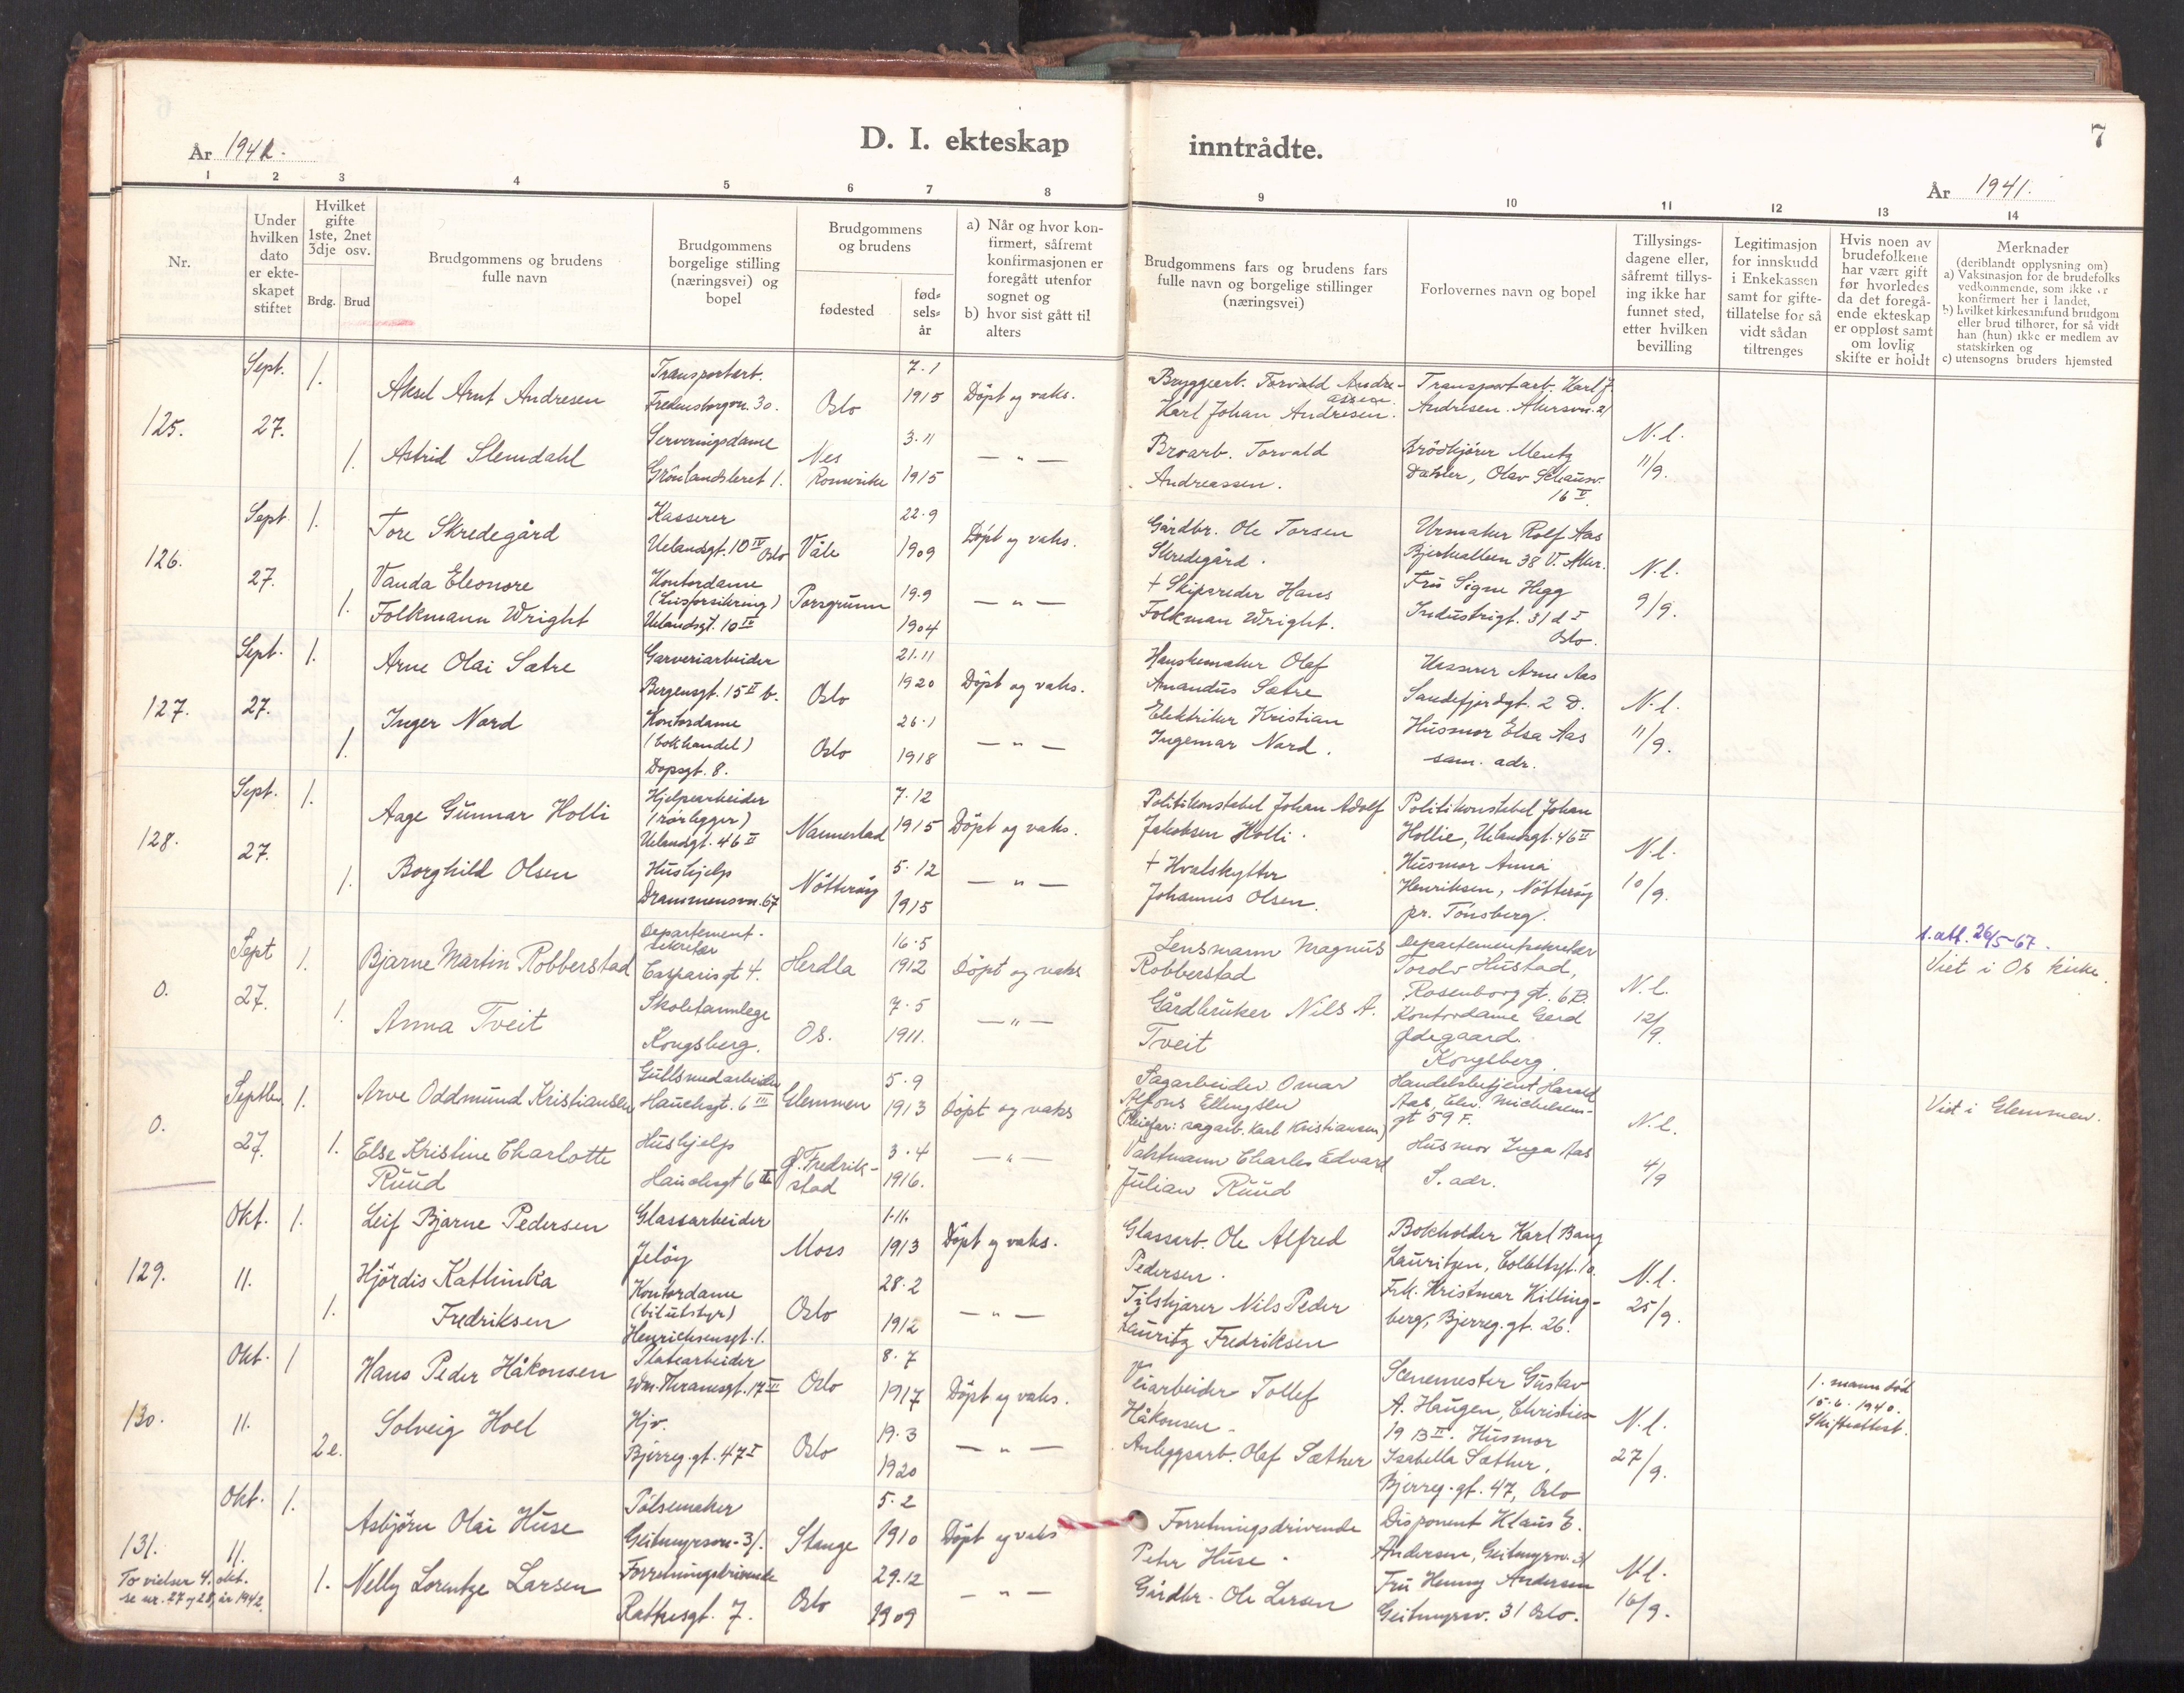 D. I. ekteskap inntrådte. 7
År 1941.
År 1941.
1 2 3 4 5 6 7 8 9 10 11 12 13 14
Nr.
Under hvilken dato er ekteskapet stiftet
Hvilket gifte 1ste, 2net 3dje osv.
Brdg. Brud
Brudgommens og brudens fulle navn
Brudgommens borgelige stilling (næringsvei) og bopel
Brudgommens og brudens
fødested
fød= sels= år
a) Når og hvor konfirmert, såfremt konfirmasjonen er foregått utenfor sognet og
b) hvor sist gått til alters
Brudgommens fars og brudens fars fulle navn og borgelige stillinger (næringsvei)
Forlovernes navn og bopel
Tillysingsdagene eller, såfremt tillysing ikke har funnet sted, etter hvilken bevilling
Legitimasjon for innskudd i Enkekassen samt for giftetillatelse for så vidt sådan tiltrenges
Hvis noen av brudefolkene har vært gift før hvorledes da det foregående ekteskap er oppløst samt om lovlig skifte er holdt
Merknader
(deriblandt opplysning om)
a) Vaksinasjon for de brudefolks vedkommende, som ikke er konfirmert her i landet,
b) hvilket kirkesamfund brudgom eller brud tilhører, for så vidt han (hun) ikke er medlem av statskirken og
c) utensogns bruders hjemsted
125. Sept. 27. 1. Aksel Arnt Andresen
Transportarb. Fredensborgvn. 30.
Oslo 7.1 1915 Döpt og vaks.
Bryggearb. Torvald Andreassen. Karl Johan Andresen.
Transportarb. Karl J. Andresen. Akersvn. 21
N.l. 11/9.
1. Astrid Slemdahl
Serveringsdame Grönlandsleret 1.
Nes Romerike 3.11 1915 — " —
Broarb. Torvald Andreassen.
Brödkjører Mentz Olav Schousv. 16 V
126. Sept. 27. 1. Tore Skredegård
Kasserer Uelandsgt. 10 IV Oslo
Våle 22.9 1909 Döpt og vaks.
Gårdbr. Ole Torsen Skredegård.
Urmaker Rolf Aas Bjerkealleen 38 V. Aker.
N.l. 9/9.
1. Vanda Eleonore Folkmann Wright
Kontordame (Livsforsikring) Uelandsgt. 10 IV
Porsgrunn 19.9 1904 — " —
+ Skipsreder Hans Folkman Wright.
Fru Signe Hegg Industrigt. 31 d I Oslo.
127. Sept. 27. 1. Arne Olai Sætre
Garveriarbeider Bergensgt. 15 II b.
Oslo 21.11 1920 Döpt og vaks.
Hanskemaker Olaf Amandus Sætre
Kasserer Arne Aas Sandefjordgt. 2 D.
N.l. 11/9.
1. Inger Nord
Kontordame (bokhandel) Dopsgt. 8.
Oslo 26.1 1918 — " —
Elektriker Kristian Ingemar Nord.
Husmor Elsa Aas sam. adr.
128. Sept. 27. 1. Aage Gunnar Holli
Hjelpearbeider (rørlegger) Uelandsgt. 46 II
Nannestad 7.12 1915 Döpt og vaks.
Politikonstabel Johan Adolf Jakobsen Holli.
Politikonstabel Johan Hollie, Uelandsgt. 46 II
N.l. 10/9.
1. Borghild Olsen
Hushjelp Drammensvn. 67
Nötteröy 5.12 1915 — " —
+ Hvalskytter Johannes Olsen.
Husmor Anna Henriksen, Nötteröy pr. Tönsberg.
0. Sept 27. 1. Bjarne Martin Robberstad
Departement-sekretær Casparisgt 4.
Herdla 16.5 1912 Döpt og vaks
Lensmann Magnus Robberstad
Departementsekretær Torolv Hustad, Rosenborg gt. 6B.
N.l. 12/9.
1. att. 26/5-67.
Viet i Os kirke.
1. Anna Tveit
Skoletannlege Kongsberg.
Os. 7.5 1911. — " —
Gårdbruker Nils A. Tveit
Kontordame Gerd Ødegaard. Kongsberg
0. Septbr. 27. 1. Arve Oddmund Kristiansen
Gullsmedarbeider Hauchsgt. 6 III
Glemmen 5.9 1913 Döpt og vaks
Sagarbeider Omar Alfons Ellingsen (Pleiefar: sagarb. Karl Kristiansen)
Handelsbetjent Harald Aas, Chr. Michelsens- gt 59 F.
N.l. 4/9
Viet i Glemmen.
1. Else Kristine Charlotte Ruud
Hushjelp Hauchsgt 6 III
G. Fredrikstad 3.4 1916. — " —
Vaktmann Charles Edvard Julian Ruud
Husmor Inga Aas S. adr.
129. Okt. 11. 1. Leif Bjarne Pedersen
Glassarbeider Jelöy
Moss 1.11. 1913 Döpt og vaks.
Glassarb. Ole Alfred Pedersen.
Bokholder Karl Bang Lauritzen, Colletsgt. 10.
N.l. 25/9.
1. Hjördis Kathinka Fredriksen
Kontordame (bilutstyr) Henrichsensgt. 1.
Oslo 28.2 1912 — " —
Nils Peder Lauritz Fredriksen
Frk. Kristmar Killingberg, Bjerreg. gt. 26.
130. Okt. 11. 1 Hans Peder Håkonsen
Platearbeider Wm. Thranesgt. 17 II
Oslo 8.7 1917 Döpt og vaks.
Veiarbeider Tollef Håkonsen.
Scenemester Gustav A. Haugen, Christies- 19 B II.
N.l. 27/9.
1. mann död 15.6.1940. Skifteattest.
2e. Solveig Hoel
Hjv. Bjerreg. gt. 47 I
Oslo 19.3 1920 — " —
Anleggsarb. Olaf Sæther
Husmor Isabella Sæther, Bjerreg. gt. 47, Oslo
131. Okt. 11. 1. Asbjörn Olai Huse
Pölsemaker Geitmyrsvn. 31.
Stange 5.2 1910 Döpt og vaks
Forretningsdrivende Peter Huse.
Disponent Klaus E. Andersen, Geitmyrsv. 31
N.l. 16/9.
1. Nelly Lorentze Larsen
Forretningsdrivende Rathkesgt. 7.
Oslo 29.12 1909 — " —
Gårdbr. Ole Larsen
Fru Henny Andersen Geitmyrsv. 31 Oslo.
To vielser 4. okt. se nr. 27 og 28, år 1942.